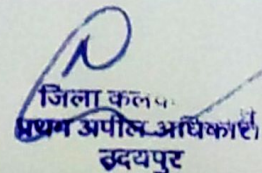 जिला कलक
प्रथम अपील अधिकारी
उदयपुर